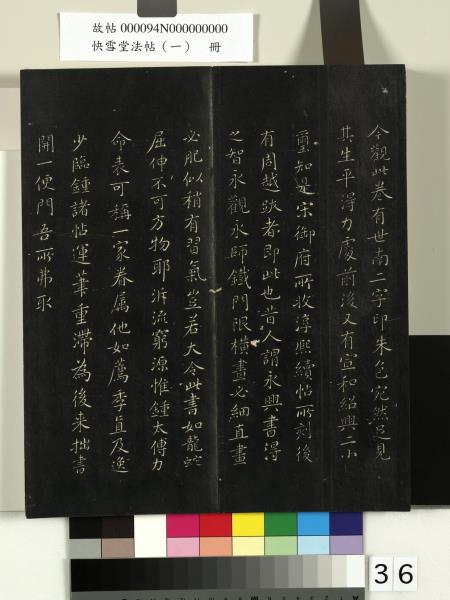 故帖 000094N000000000
快雪堂法帖（一） 冊
今觀此卷有世南二字印朱色宛然足見
其生平得力處前後又有宣和紹興二小
璽知是宋御府所收淳熙續帖所刻後
有周越跋者即此也昔人謂永興書得
之智永觀永師鐵門限橫畫必細直畫
必肥似稍有習氣豈若大令此書如龍蛇
屈伸不可方物耶泝流窮源惟鍾太傅力
命表可稱一家眷屬他如薦季直及逸
少臨鍾諸帖運筆重滯為後來拙書
開一便門吾所弗取
36